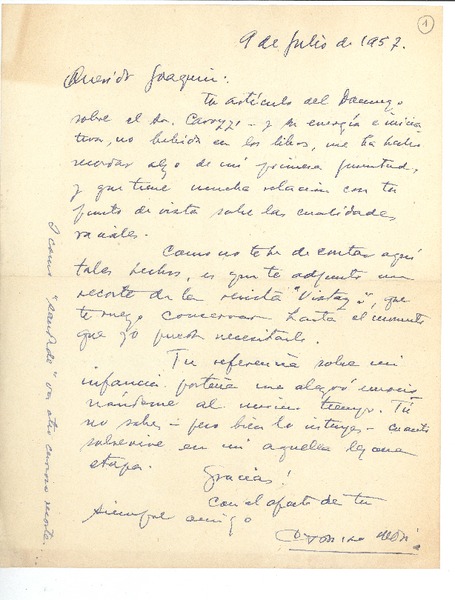 1
9 de Julio de 1957.
Querido Joaquín:
Tu artículo del Domingo
sobre el Sr. Carozzi – y su energía e inicia
tiva, no bebida en los libros, me ha hecho
recordar algo de mi primera juventud,
y que tiene mucha relación con tu
punto de vista sobre las cualidades
raciales.
Como no te he de contar aquí
tales hechos, es que te adjunto un
recorte de la revista "Vistazo", que
te ruego conservar hasta el momento
que yo pueda necesitarlo.
Tu referencia sobre mi
infancia porteña me alagó emocio
nándome al mismo tiempo. Tú
no sabes – pero bien lo intuyes – cuanto
sobrevive en mi aquella lejana
etapa.
Gracias!
Con el afecto de tu
siempre amigo
I como "" va otro curioso recorte.